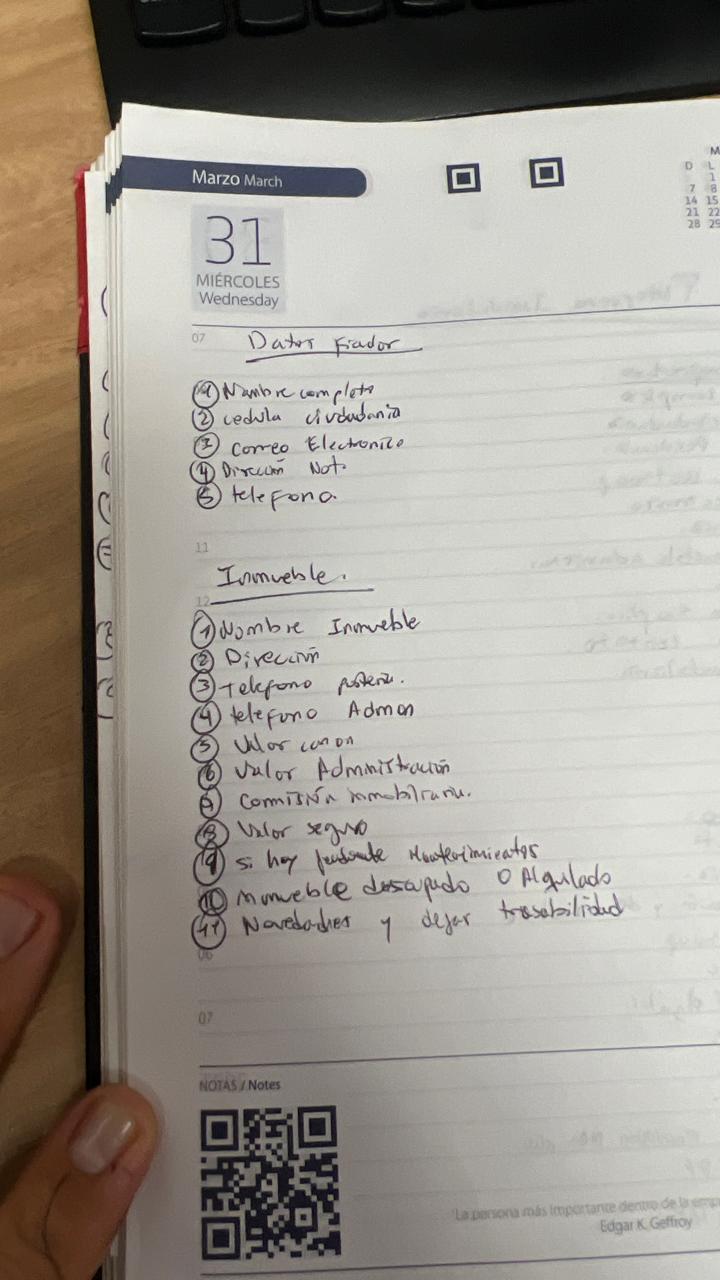 Marzo March
31
MIÉRCOLES
Wednesday
M
D L
1
7 8
14 15
21 22
28 29
07
Datos Fiador
1 Nombre completo
2 cedula ciudadania
3 correo Electronico
4 Dirección Not.
5 telefono.
11
Inmueble.
12
1 Nombre Inmueble
2 Dirección
3 telefono
4 telefono Admon
5 Valor canon
6 Valor Administración
7 Comisión inmobiliaria.
8 Valor seguro
9 si hay pendiente Mantenimientos
10 Inmueble desocupado O Alquilado
11 Novedades y dejar trasabilidad
06
07
NOTAS / Notes
"La persona más importante dentro de la
Edgar K. Geffroy